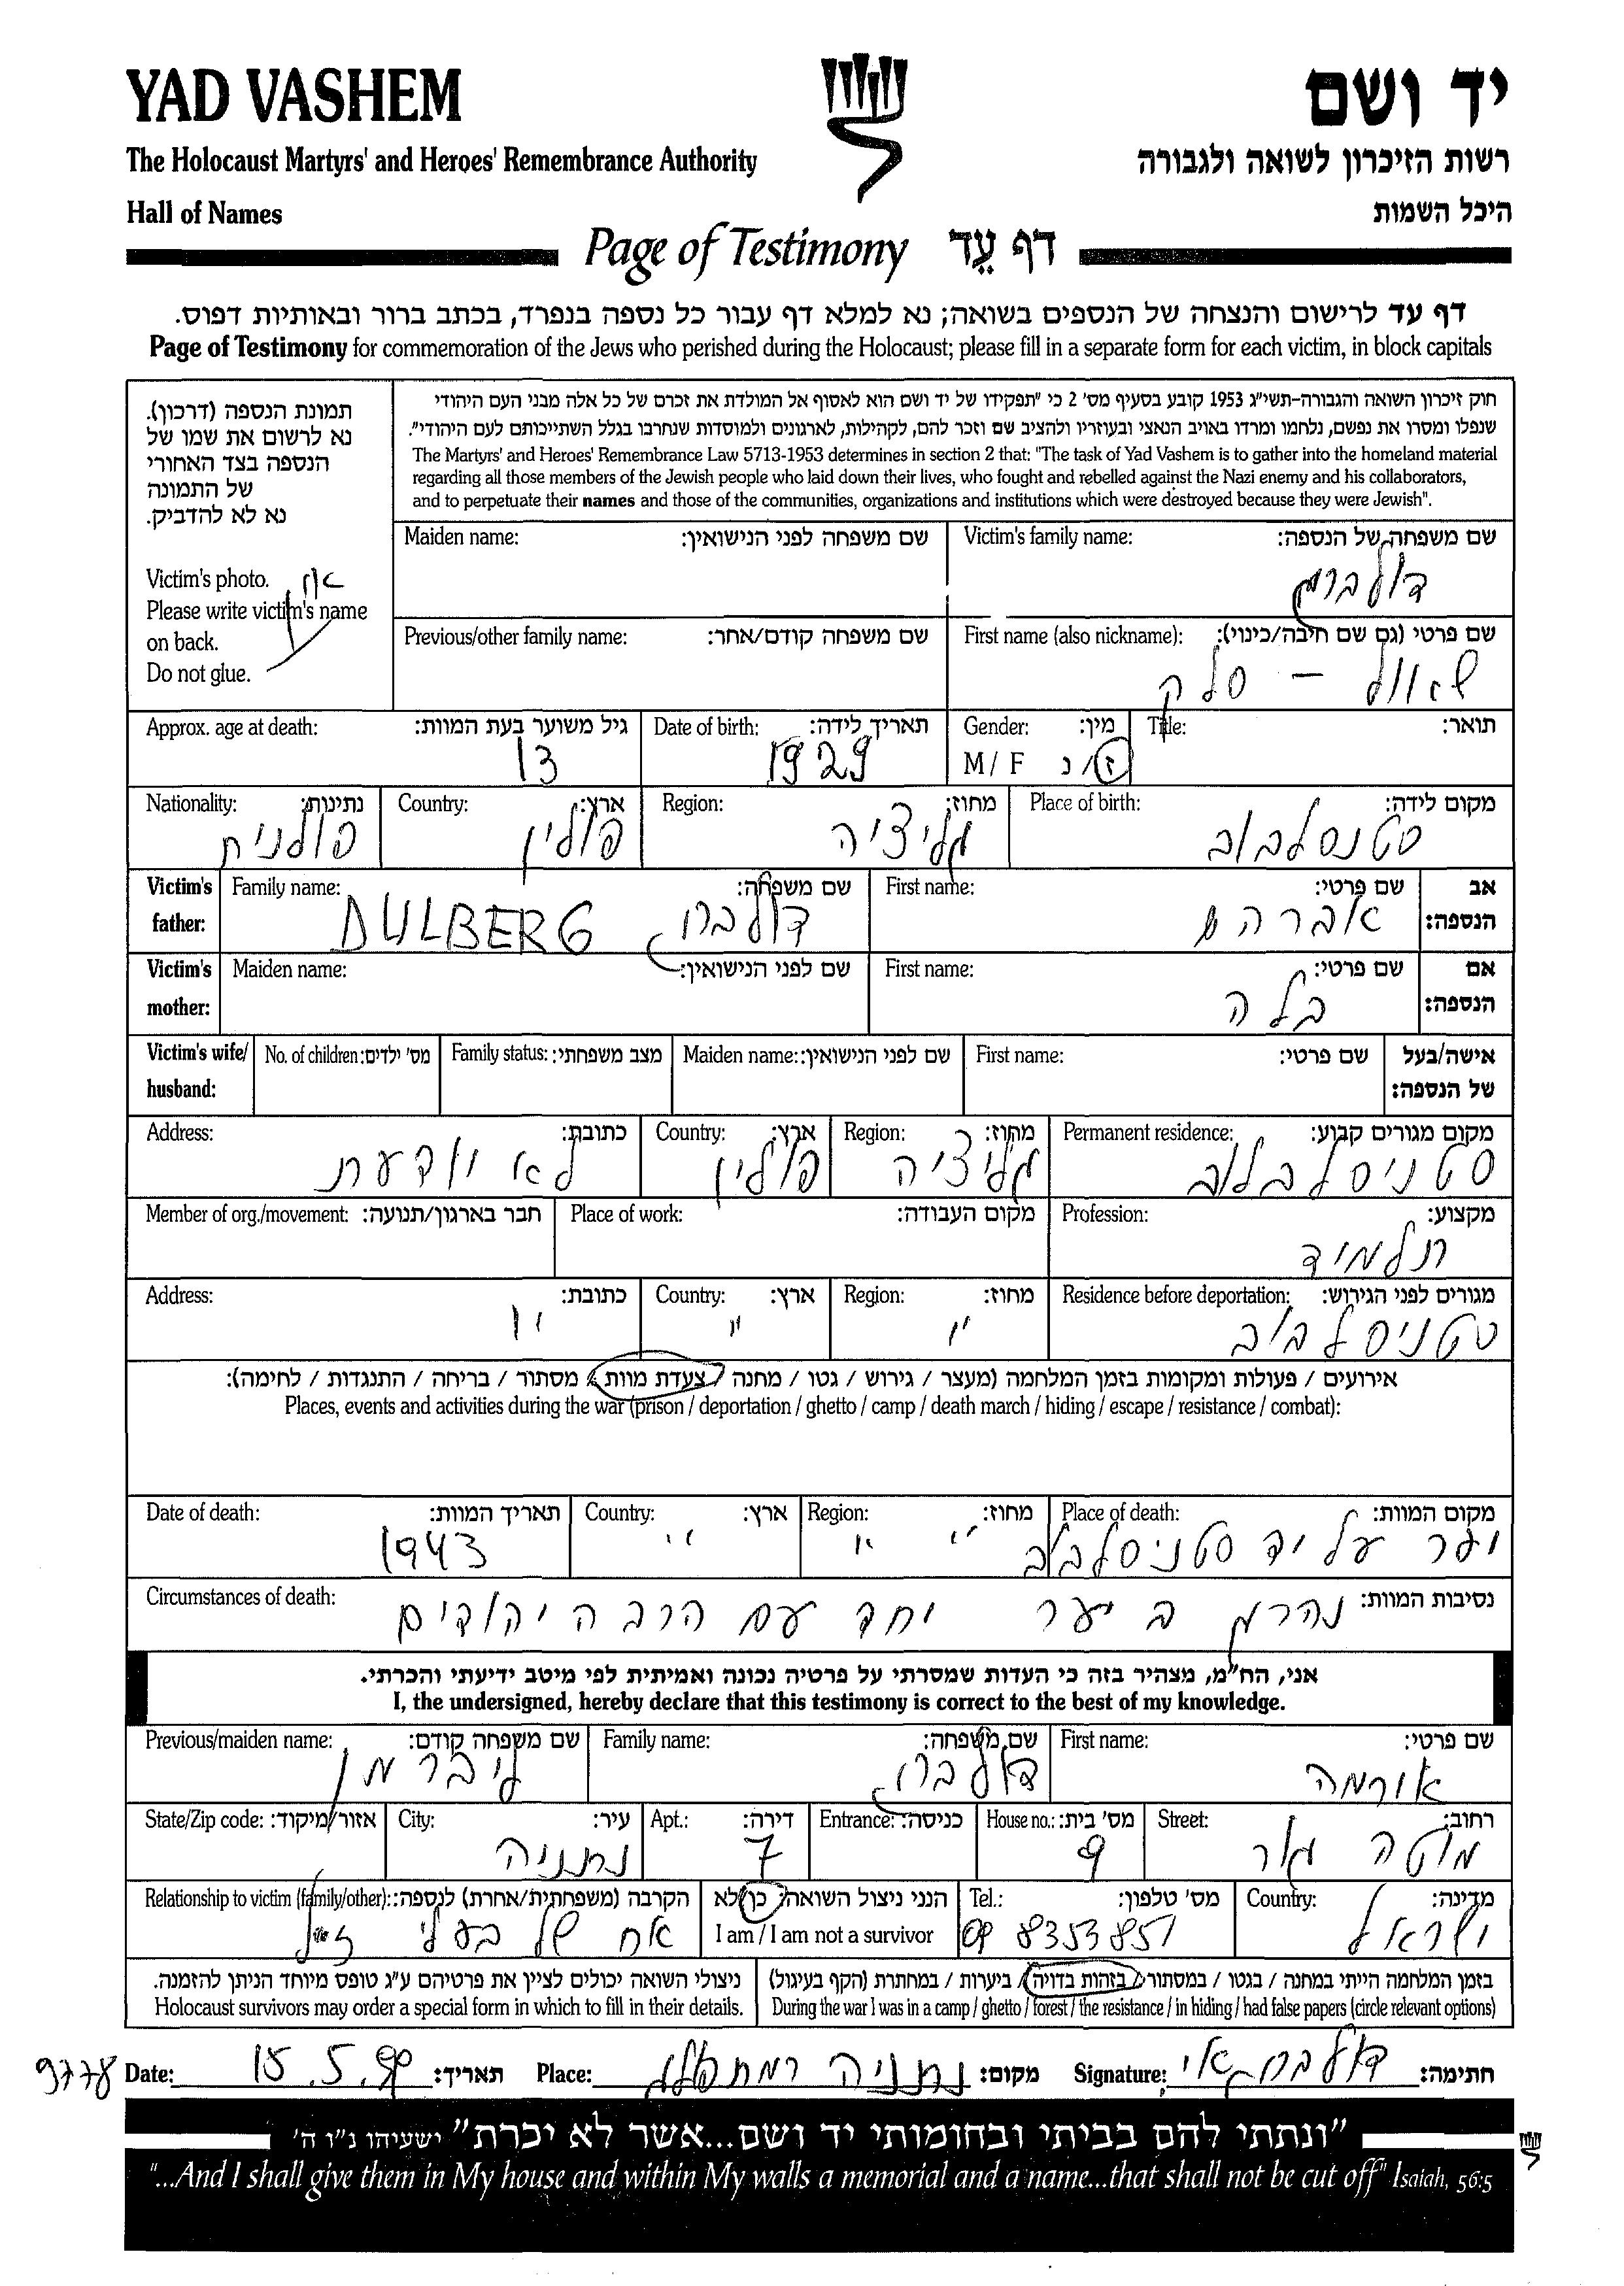 YAD VASHEM
יד ושם
The Holocaust Martyrs' and Heroes' Remembrance Authority
רשות הזיכרון לשואה ולגבורה
Hall of Names
היכל השמות
Page of Testimony דף עֵד
דף עד לרישום והנצחה של הנספים בשואה; נא למלא דף עבור כל נספה בנפרד, בכתב ברור ובאותיות דפוס.
Page of Testimony for commemoration of the Jews who perished during the Holocaust; please fill in a separate form for each victim, in block capitals
תמונת הנספה (דרכון).
נא לרשום את שמו של
הנספה בצד האחורי
של התמונה
נא לא להדביק.
Victim's photo.
Please write victim's name
on back.
Do not glue.
חוק זיכרון השואה והגבורה-תשי"ג 1953 קובע בסעיף מס' 2 כי "תפקידו של יד ושם הוא לאסוף אל המולדת את זכרם של כל אלה מבני העם היהודי
שנפלו ומסרו את נפשם, נלחמו ומרדו באויב הנאצי ובעוזריו ולהציב שם וזכר להם, לקהילות, לארגונים ולמוסדות שנחרבו בגלל השתייכותם לעם היהודי".
The Martyrs' and Heroes' Remembrance Law 5713-1953 determines in section 2 that: "The task of Yad Vashem is to gather into the homeland material
regarding all those members of the Jewish people who laid down their lives, who fought and rebelled against the Nazi enemy and his collaborators,
and to perpetuate their names and those of the communities, organizations and institutions which were destroyed because they were Jewish".
Victim's family name: שם משפחה של הנספה:
דולברג
Maiden name: שם משפחה לפני הנישואין:
First name (also nickname): שם פרטי (גם שם חיבה/כינוי):
שאול – סלק
Previous/other family name: שם משפחה קודם/אחר:
Title: תואר:
Gender: מין:
M / F ז/נ
Date of birth: תאריך לידה:
1929
Approx. age at death: גיל משוער בעת המוות:
13
Place of birth: מקום לידה:
סטנסלבוב
Region: מחוז:
גליציה
Country: ארץ:
פולין
Nationality: נתינות:
פולנית
אב הנספה:
First name: שם פרטי:
אברהם
Family name: שם משפחה:
דולברג DULBERG
Victim's father:
אם הנספה:
First name: שם פרטי:
בלה
Maiden name: שם לפני הנישואין:
Victim's mother:
אישה/בעל של הנספה:
First name: שם פרטי:
Maiden name: שם לפני הנישואין:
Family status: מצב משפחתי:
No. of children: מס' ילדים:
Victim's wife/ husband:
Permanent residence: מקום מגורים קבוע:
סטניסלבוב
Region: מחוז:
גליציה
Country: ארץ:
פולין
Address: כתובת:
לא יודעת
Profession: מקצוע:
תלמיד
Place of work: מקום העבודה:
Member of org./movement: חבר בארגון/תנועה:
Residence before deportation: מגורים לפני הגירוש:
סטניסלבוב
Region: מחוז:
"
Country: ארץ:
"
Address: כתובת:
"
אירועים / פעולות ומקומות בזמן המלחמה (מעצר / גירוש / גטו / מחנה / צעדת מוות / מסתור / בריחה / התנגדות / לחימה):
Places, events and activities during the war (prison / deportation / ghetto / camp / death march / hiding / escape / resistance / combat):
Place of death: מקום המוות:
יער על יד סטניסלבוב
Region: מחוז:
" "
Country: ארץ:
"
Date of death: תאריך המוות:
1943
Circumstances of death: נסיבות המוות:
נהרג ביער יחד עם הרבה יהודים
אני, הח"מ, מצהיר בזה כי העדות שמסרתי על פרטיה נכונה ואמיתית לפי מיטב ידיעתי והכרתי.
I, the undersigned, hereby declare that this testimony is correct to the best of my knowledge.
First name: שם פרטי:
אירמה
Family name: שם משפחה:
דולברג
Previous/maiden name: שם משפחה קודם:
ליברמן
Street: רחוב:
מוטה גור
House no.: מס' בית:
9
Entrance: כניסה:
Apt.: דירה:
7
City: עיר:
נתניה
State/Zip code: אזור/מיקוד:
Country: מדינה:
ישראל
Tel.: מס' טלפון:
09 8353851
הנני ניצול השואה: כן/לא
I am / I am not a survivor
Relationship to victim (family/other): הקרבה (משפחתית/אחרת) לנספה:
אח של בעלי ז"ל
בזמן המלחמה הייתי במחנה / בגטו / במסתור / בזהות בדויה / ביערות / במחתרת (הקף בעיגול)
During the war I was in a camp / ghetto / forest / the resistance / in hiding / had false papers (circle relevant options)
ניצולי השואה יכולים לציין את פרטיהם ע"ג טופס מיוחד הניתן להזמנה.
Holocaust survivors may order a special form in which to fill in their details.
Date: 15.5.99 תאריך:
Place: נתניה מקום:
Signature: דולברג חתימה:
9778
"ונתתי להם בביתי ובחומותי יד ושם...אשר לא יכרת" ישעיהו נ"ו ה'
"...And I shall give them in My house and within My walls a memorial and a name...that shall not be cut off" Isaiah, 56:5